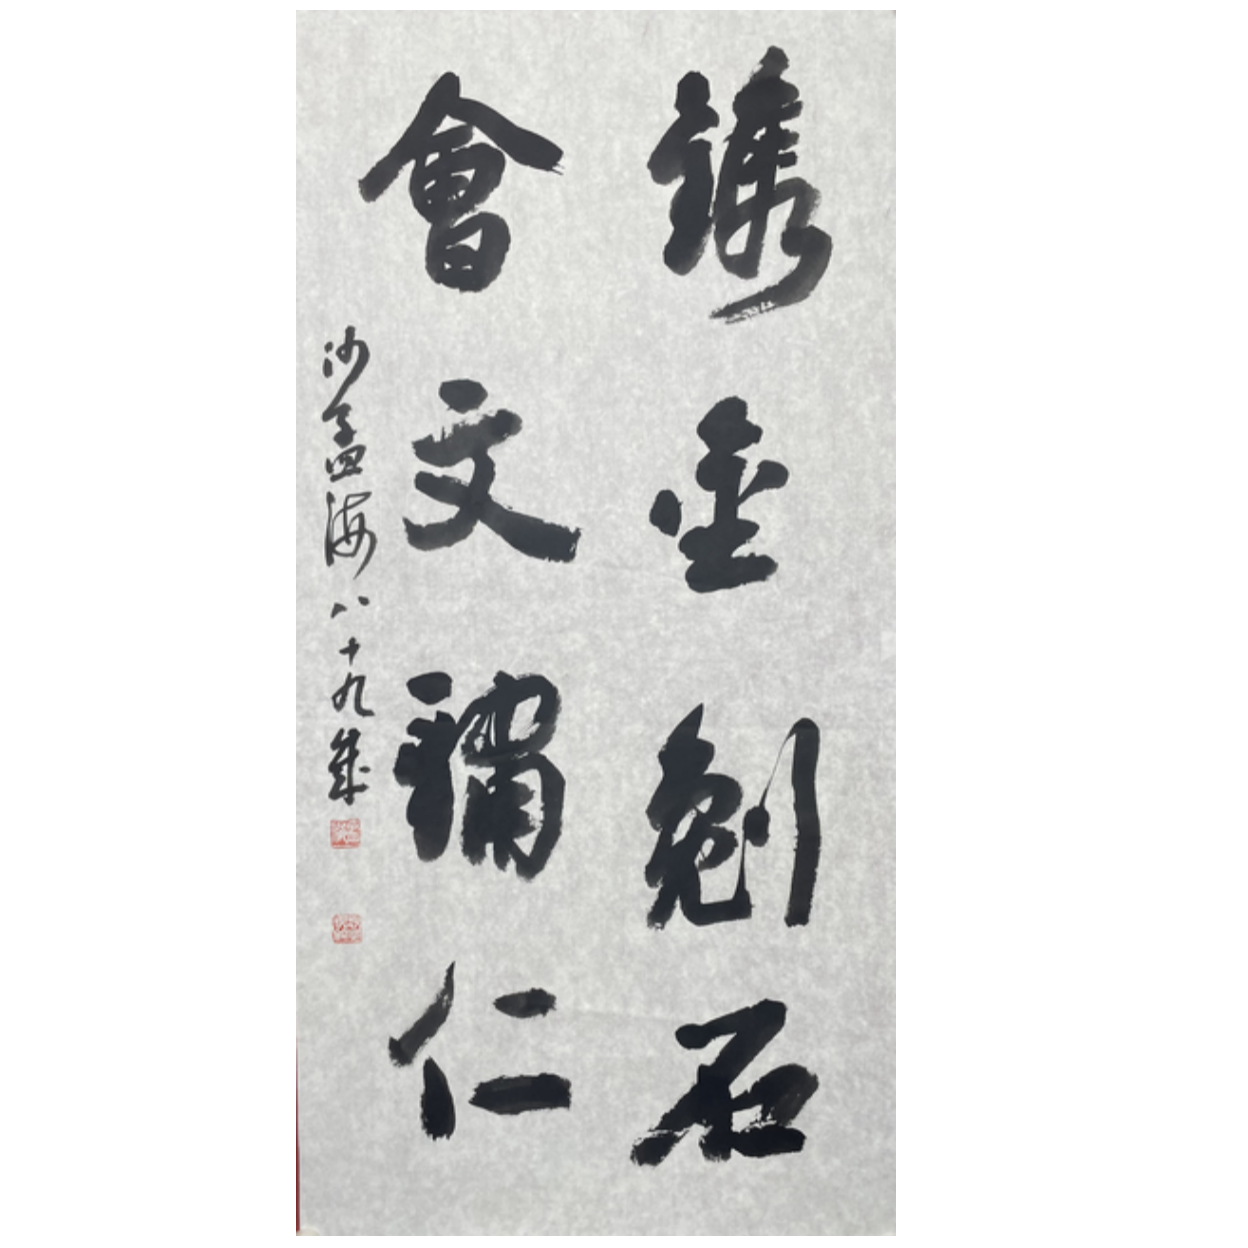 鎸金劖石
會文輔仁
沙孟海八十九歲